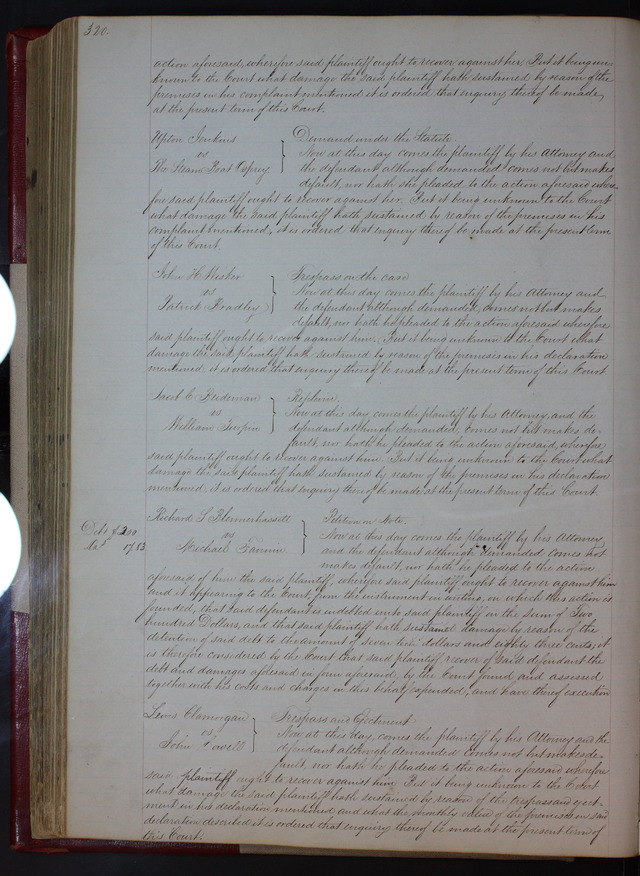 320.
action aforesaid, wherefore said plaintiff ought to recover against her. But it being un-
known to the Court what damage the said plaintiff hath sustained by reason of the
premises in his complaint mentioned it is ordered that enquiry thereof be made,
at the present term of this Court.
Upton Jenkins
vs
The Steam Boat Osprey
Demand under the Statute.
Now at this day comes the plaintiff by his Attorney and
the defendant although demanded comes not but makes
default, nor hath she pleaded to the action aforesaid where-
fore said plaintiff ought to recover against her. But it being unknown to the Court
what damage the said plaintiff hath sustained by reason of the premises in his
complaint mentioned, it is ordered that enquiry thereof be made at the present term
of this Court
John H.
vs
Patrick Bradley
Trespass on the case
Now at this day comes the plaintiff by his Attorney and
the defendant although demanded, comes not but makes
default, nor hath he pleaded to the action aforesaid wherefore
said plaintiff ought to recover against him. But it being unknown to the Court what
damage the said plaintiff hath sustained by reason of the premises in his declaration
mentioned, it is ordered that enquiry thereof be made at the present term of this Court
Jacob C.
vs
William Turpin
Replevin.
Now at this day, comes the plaintiff by his Attorney, and the
defendant although demanded, comes not but makes de-
fault, nor hath he pleaded to the action aforesaid, wherefore
said plaintiff ought to recover against him. But it being unknown to the Court what
damage the said plaintiff hath sustained by reason of the premises in his declaration
mentioned it is ordered that enquiry thereof be made at the present term of this Court
Debt $200
Da^s 17 83
Richard S Blennerhassett
vs
Michael Fannin
Petition in Note.
Now at this day comes the plaintiff by his Attorney,
and the defendant although demanded comes not
makes default, nor hath he pleaded to the action
aforesaid of him the said plaintiff, wherefore said plaintiff ought to recover against him
and it appearing to the Court, from the instrument in writing, on which this action is
founded, that said defendant is indebted unto said plaintiff in the sum of Two
hundred Dollars, and that said plaintiff hath sustained damage by reason of the
detention of said debt to the amount of seventeen dollars and eighty three cents, it
is therefore considered by the Court that said plaintiff recover of said defendant the
debt and damages aforesaid in form aforesaid, by the Court found and assessed
together with his costs and charges in this behalf expended, and have thereof execution
Lewis Clamorgan
vs
John Powell
Trespass and Ejectment
Now at this day, comes the plaintiff by his Attorney and the
defendant although demanded comes not but makes de-
fault, nor hath he pleaded to the action aforesaid wherefore
said plaintiff ought to recover against him But it being unknown to the Court
what damage the said plaintiff hath sustained by reason of the trespass and eject-
ment in his declaration mentioned and what the monthly value of the premises in said
declaration described it is ordered that enquiry thereof be made at the present term of
this Court.